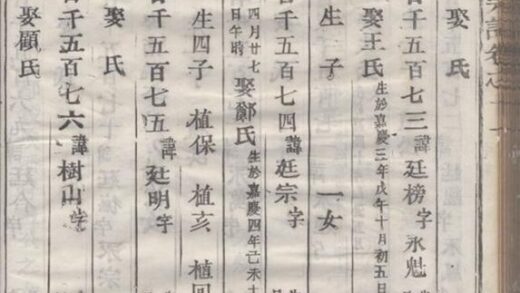 娶 氏
千五百七三 諱廷榜 字氷魁
娶王氏 生於嘉慶三年戊午十月初五日
生 子 一女
千五百七四 諱廷宗 字
四月廿七日午時 娶鄭氏 生於嘉慶四年己未十
生四子 植保 植亥 植回
千五百七五 諱廷明 字
娶 氏
千五百七六 諱樹山 字
娶顧氏